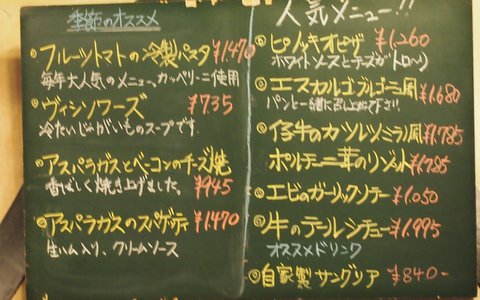 季節のオススメ
フルーツトマトの冷製パスタ ¥1,470
毎年大人気のメニュー、カッペリーニ使用
ヴィシソワーズ ¥735
冷たいじゃがいものスープです。
アスパラガスとベーコンのチーズ焼
香ばしく焼き上げました。 ¥945
アスパラガスのスパゲッティ ¥1,470
生ハム入り、クリームソース
人気メニュー!!
ピノッキオピザ ¥1,260
ホワイトソースとチーズがトロ〜)
エスカルゴブルゴーニュ風 ¥1,680
パンと一緒に召し上がれ下さい!
仔牛のカツレツミラノ風 ¥1,785
ポルチーニ茸のリゾット ¥1,785
エビのガーリックソテー ¥1,050
牛のテールシチュー ¥1,995
オススメドリンク
自家製サングリア ¥840-